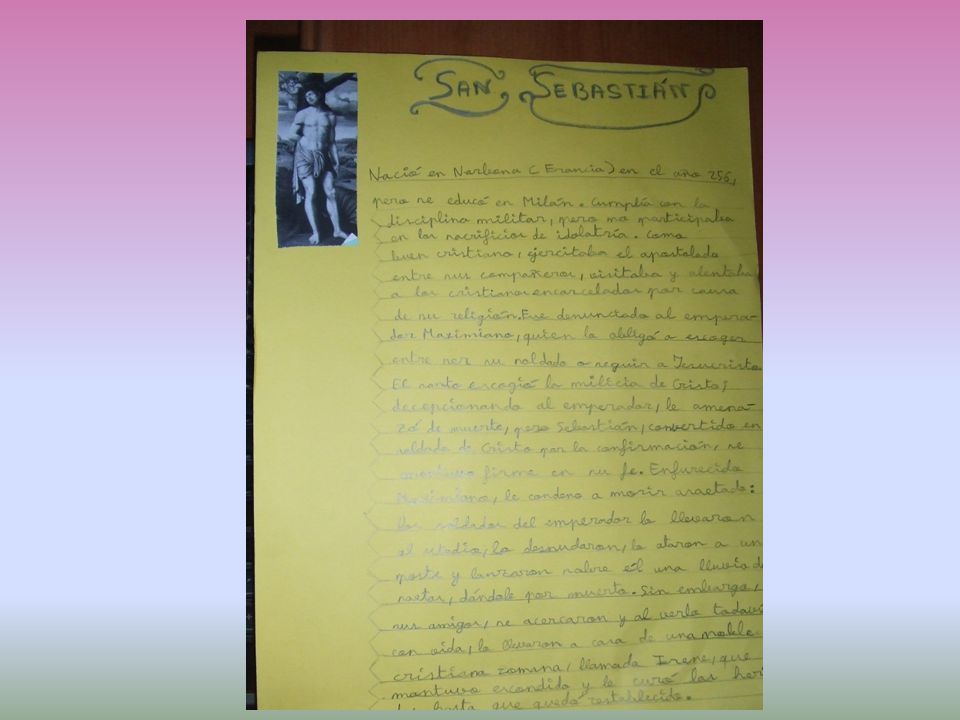 SAN SEBASTIÁN
Nació en Narbona (Francia) en el año 256,
pero se educó en Milán. Cumplía con la
disciplina militar, pero no participaba
en los sacrificios de idolatría. Como
buen cristiano, ejercitaba el apostolado
entre sus compañeros, visitaba y alentaba
a los cristianos encarcelados por causa
de su religión. Fue denunciado al empera-
dor Maximiano, quien lo obligó a escoger
entre ser su soldado o seguir a Jesucristo.
El santo escogió la milicia de Cristo;
decepcionando al emperador, le amena-
zó de muerte, pero Sebastián, convertido en
soldado de Cristo por la confirmación, se
mantuvo firme en su fe. Enfurecido
Maximiano, le condeno a morir asaetado:
los soldados del emperador lo llevaron
al estadio, lo desnudaron, lo ataron a un
poste y lanzaron sobre él una lluvia de
saetas, dándole por muerto. Sin embargo,
sus amigos, se acercaron y al verlo todaví
con vida, lo llevaron a casa de una noble
cristiana romana, llamada Irene, que
mantuvo escondido y le curó las heri
das hasta que quedó restablecido.